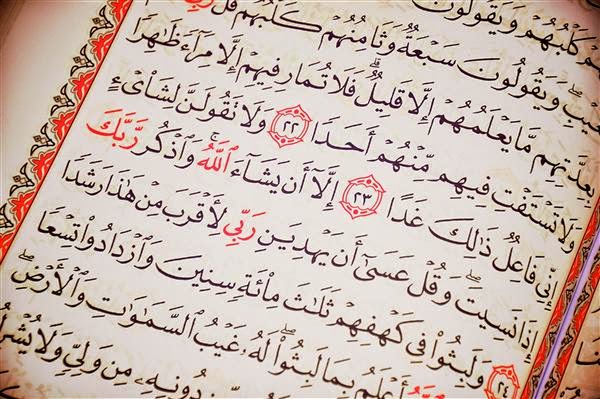 كَلْبُهُمْ وَيَقُولُونَ
وَيَقُولُونَ سَبْعَةٌ وَثَامِنُهُمْ كَلْبُهُمْ قُل
بِعِدَّتِهِم مَّا يَعْلَمُهُمْ إِلَّا قَلِيلٌ ۗ فَلَا تُمَارِ فِيهِمْ إِلَّا مِرَآءً ظَٰهِرًا
وَلَا تَسْتَفْتِ فِيهِم مِّنْهُمْ أَحَدًا ٢٢ وَلَا تَقُولَنَّ لِشَا۟ىْءٍ
إِنِّى فَاعِلٌ ذَٰلِكَ غَدًا ٢٣ إِلَّآ أَن يَشَآءَ ٱللَّهُ ۚ وَٱذْكُر رَّبَّكَ
إِذَا نَسِيتَ وَقُلْ عَسَىٰٓ أَن يَهْدِيَنِ رَبِّى لِأَقْرَبَ مِنْ هَٰذَا رَشَدًا
٢٤ وَلَبِثُوا۟ فِى كَهْفِهِمْ ثَلَٰثَ مِا۟ئَةٍ سِنِينَ وَٱزْدَادُوا۟ تِسْعًا
أَعْلَمُ بِمَا لَبِثُوا۟ ۖ لَهُۥ غَيْبُ ٱلسَّمَٰوَٰتِ وَٱلْأَرْضِ ۖ
دُونِهِۦ مِن وَلِىٍّ وَلَا